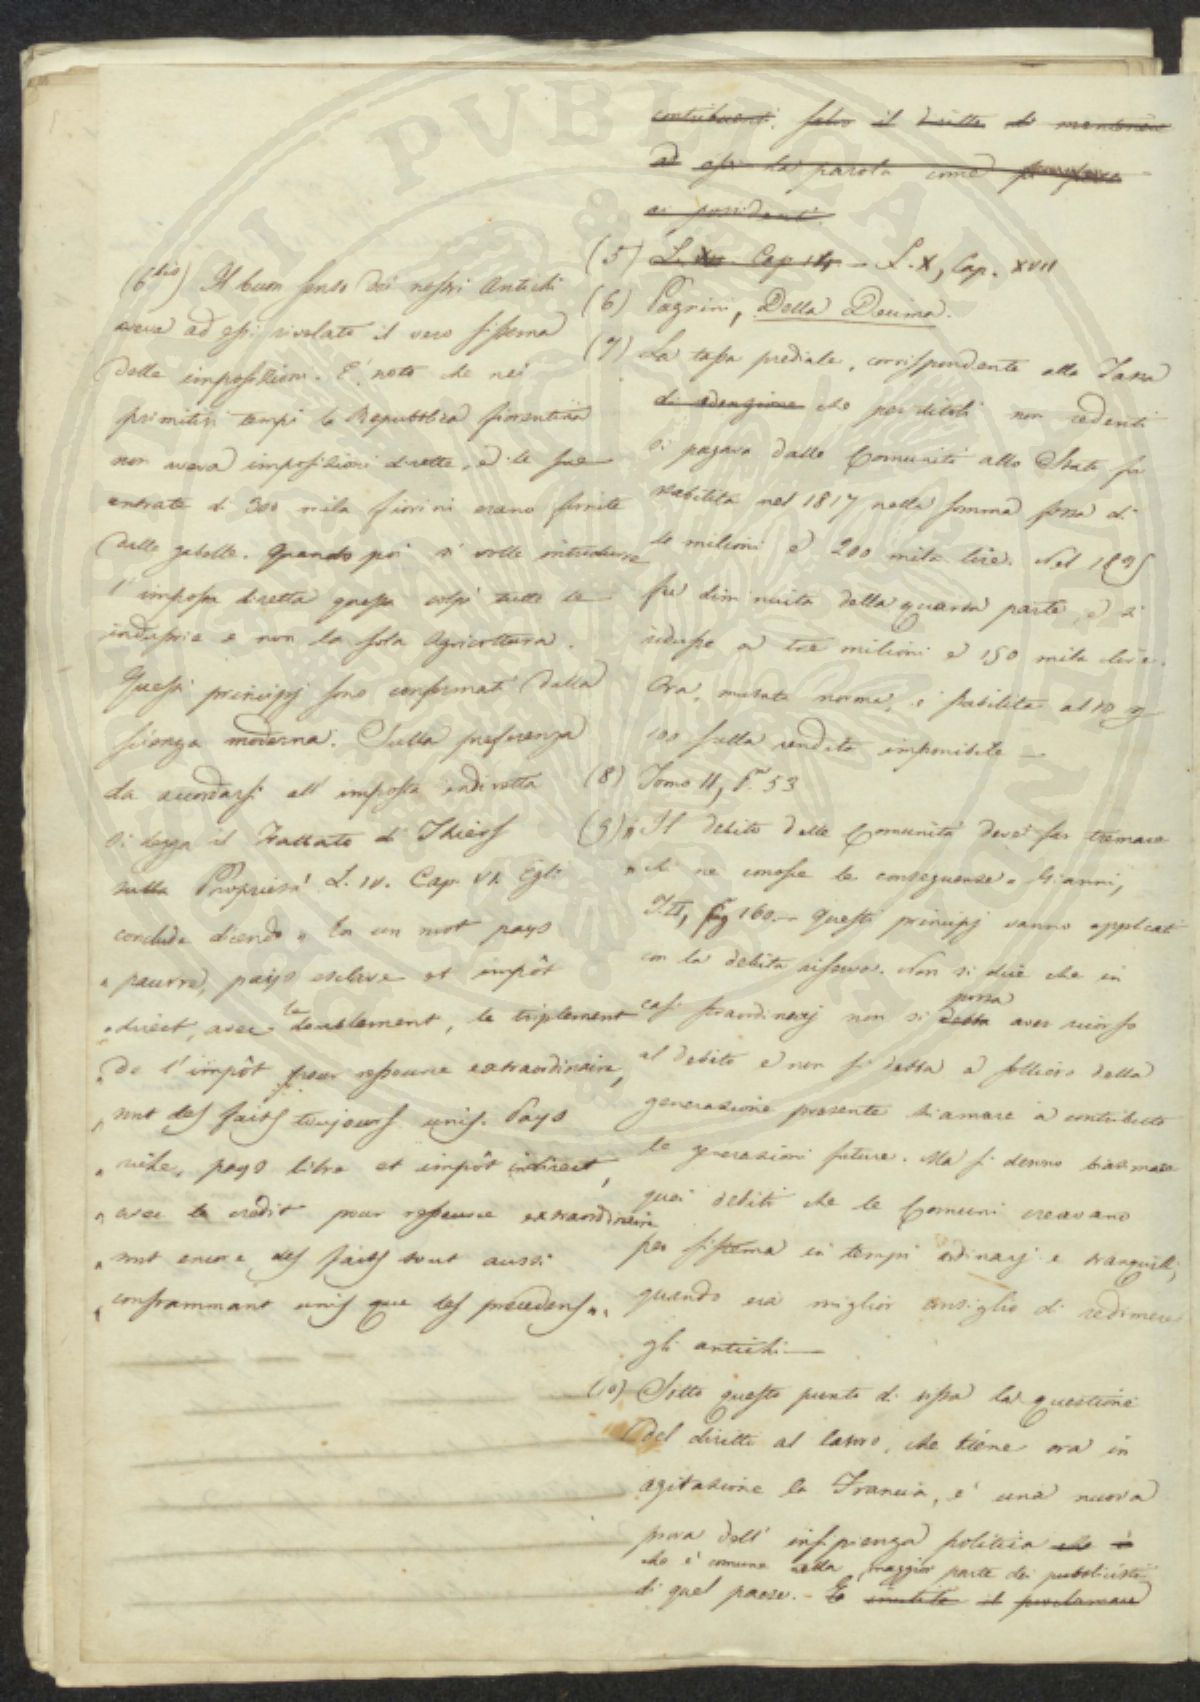 (6 bis) Il buon senso dei nostri Antichi
aveva ad essi rivelato il vero sistema
delle imposizioni. È noto che nei
primitivi tempi la Repubblica fiorentina
non aveva imposizioni dirette, e le sue
entrate di 300 mila fiorini erano fornite
dalle gabelle. Quando poi si volle introdurre
l'imposta diretta questa colpì tutte le
industrie e non la sola Agricoltura.
Questi principj sono confermati dalla
scienza moderna. Sulla preferenza
da accordarsi all'imposta indiretta
si legga il Trattato di Thiers
sulla Proprietà L. IV. Cap. VI. Egli
conclude dicendo „ En un mot pays
„ pauvre, pays esclave et impôt
„ direct, avec le doublement, le triplement
„ de l'impôt pour ressource extraordinaire,
„ sont des faits toujours unis. Pays
„ riche, pays libre et impôt indirect,
„ avec le crédit pour ressource extraordinaire
„ sont encore des faits tout aussi
„ constamment unis que les précédens „.
contribuenti. salvo il diritto di mantenere
ad essi la parola come
ai possidenti.
(5) Cap. – L. X, Cap. XVII
(6) Pagnini, Della Decima.
(7) La tassa prediale, corrispondente alla Tassa
di redenzione che per i titoli non redenti
si pagava dalle Comunità allo Stato fu
stabilita nel 1817 nella somma fissa di
milioni e 200 mila lire. Nel 18
fu diminuita della quarta parte, e si
ridusse a tre milioni e 150 mila lire.
Ora, mutate norme, è stabilita al 10 p
100 sulla rendita imponibile —
(8) Tomo II, P. 53
(9) „ Il debito delle Comunità deve far tremare
„ chi ne conosce le conseguenze „ Gianni,
T. II, pag 160. — Questi principj vanno applicati
con la debita riserva. Non si dice che in
casi straordinarj non si debba possa aver ricorso
al debito e non si debba a sollievo della
generazione presente chiamare a contributo
le generazioni future. Ma si denno biasimare
quei debiti che le Comuni creavano
per sistema in tempi ordinarj e tranquilli,
quando era miglior consiglio di redimere
gli antichi —
(10) Sotto questo punto di vista la questione
del diritto al lavoro, che tiene ora in
agitazione la Francia, è una nuova
prova dell'insipienza politica che è
che è comune nella maggior parte dei pubblicisti
di quel paese. – È inutile il proclamare